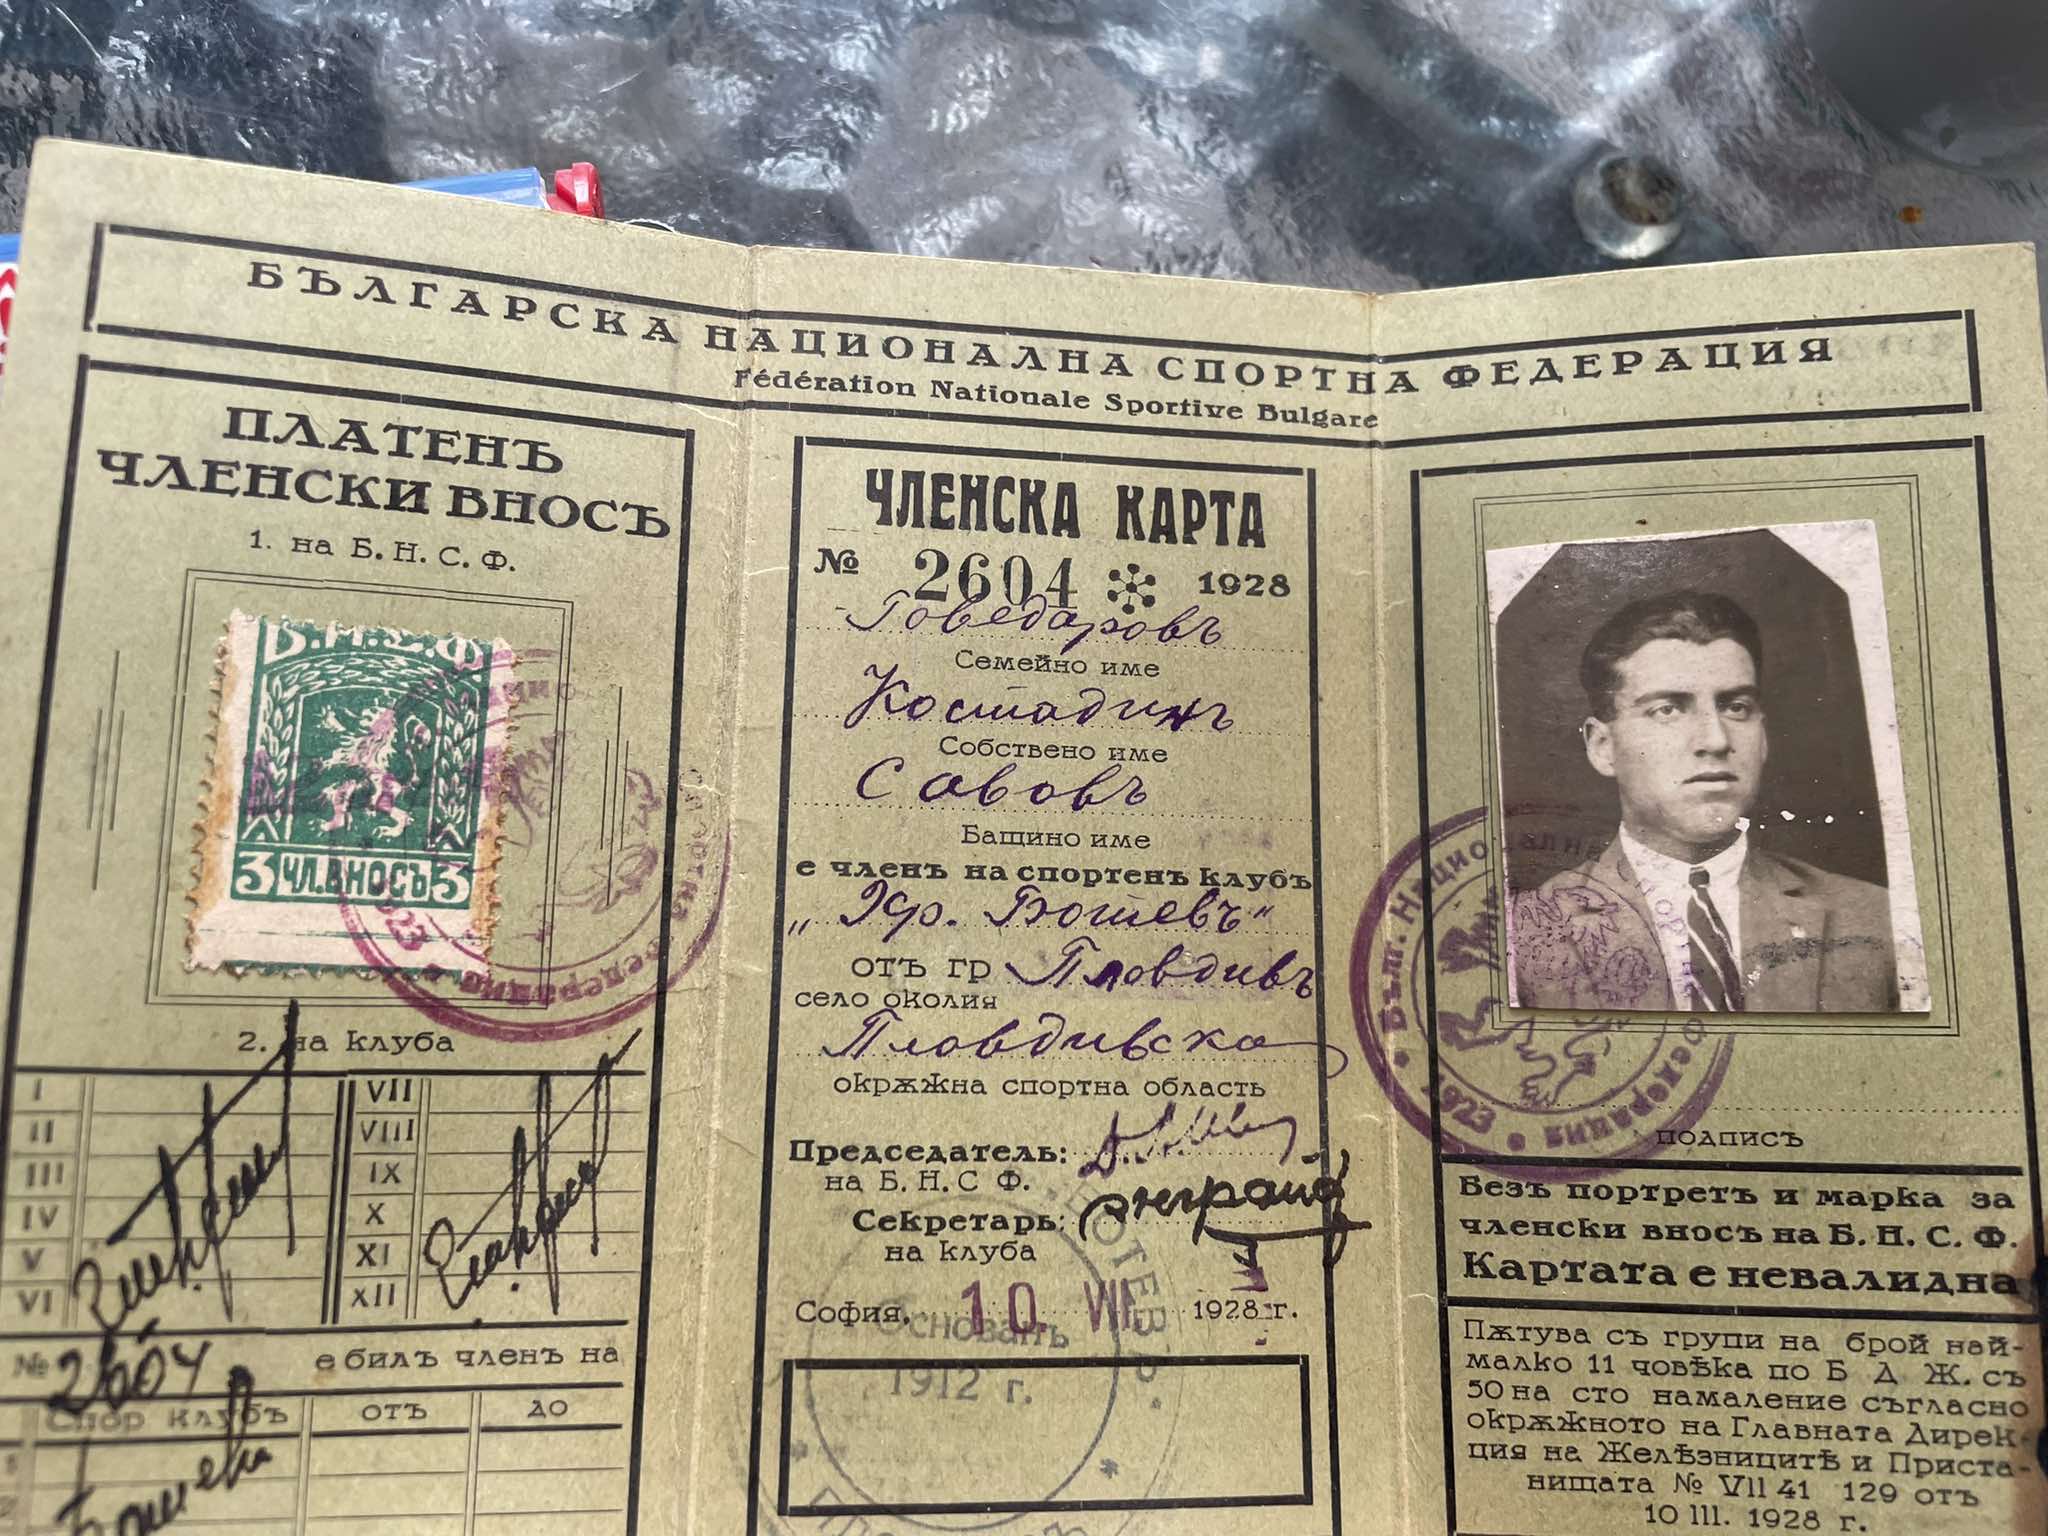 БЪЛГАРСКА НАЦИОНАЛНА СПОРТНА ФЕДЕРАЦИЯ
Fédération Nationale Sportive Bulgare
ПЛАТЕНЪ
ЧЛЕНСКИ ВНОСЪ
1. на Б. Н. С. Ф.
Б.Н.С.Ф.
3 ЧЛ.ВНОСЪ 3
2. на клуба
I VII
II VIII
III IX
IV X
V XI
VI XII
№ 2604 е билъ членъ на
Спор клубъ отъ до
1 Ботевъ
2
ЧЛЕНСКА КАРТА
№ 2604 1928
Говедаровъ
Семейно име
Костадинъ
Собствено име
Савовъ
Бащино име
е членъ на спортенъ клубъ
„Хр. Ботевъ“
отъ гр Пловдивъ
село околия
Пловдивска
окрѫжна спортна область
Председатель:
на Б. Н. С Ф.
Секретарь:
на клуба
София, 10. VII 1928 г.
Основанъ
1912 г.
БОТЕВЪ
Бълг. Национална Спортна Федерация
1923
подпись
Безъ портретъ и марка за
членски вносъ на Б. Н. С. Ф.
Картата е невалидна
Пѫтува съ групи на брой най-
малко 11 човѣка по Б Д Ж. съ
50 на сто намаление съгласно
окрѫжното на Главната Дирек-
ция на Желѣзницитѣ и Приста-
нищата № VII 41 129 отъ
10 III. 1928 г.